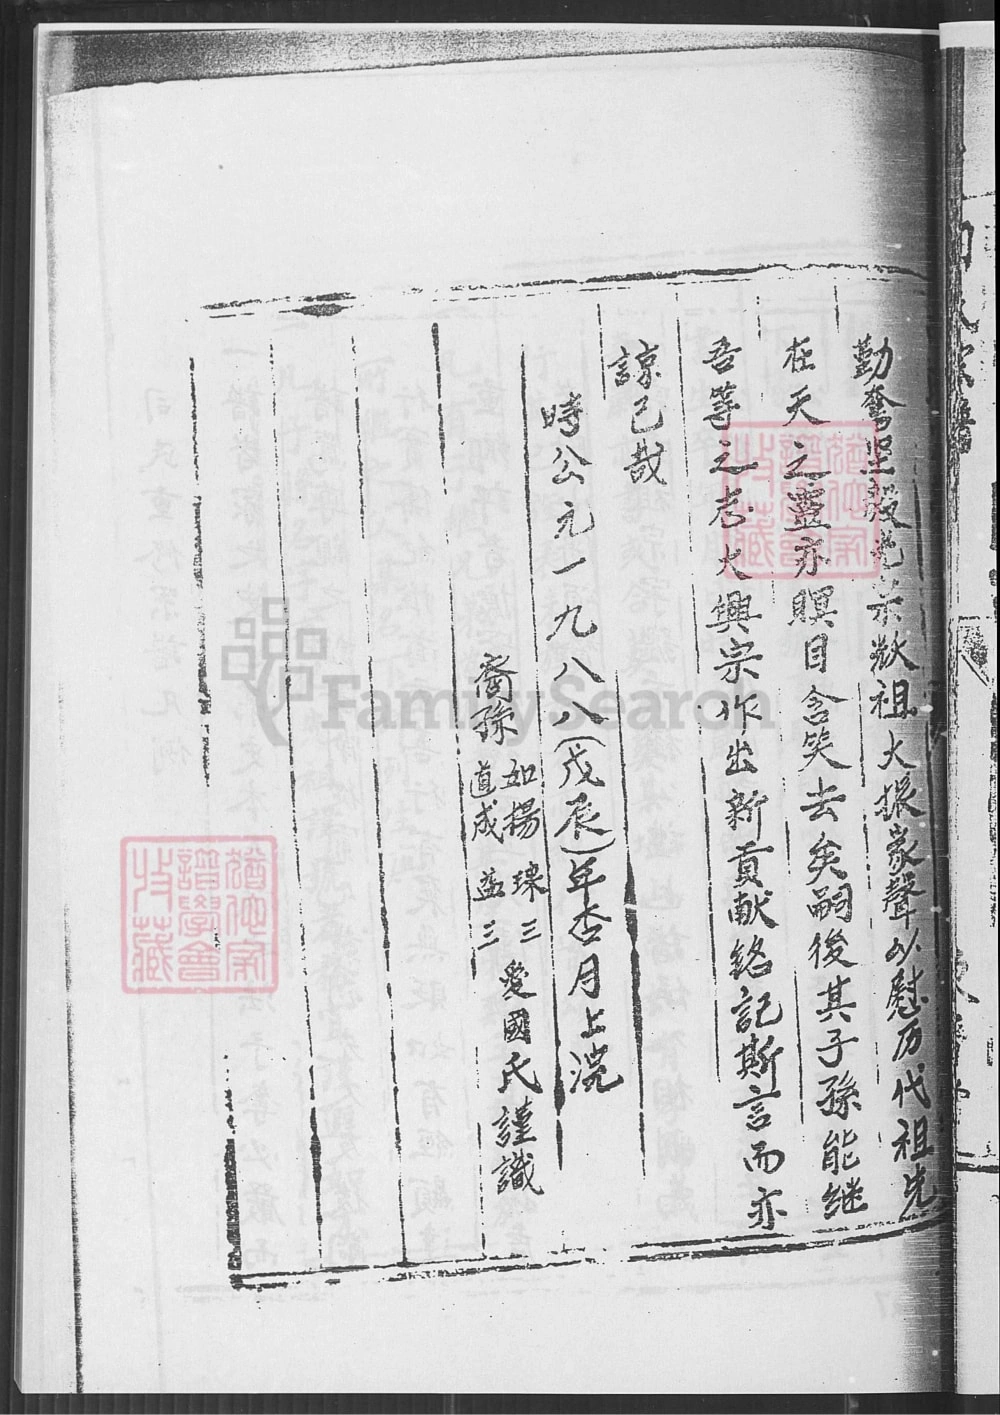 勤奮堅毅光宗猷祖大振家聲以慰历代祖先
在天之靈亦瞑目含笑去矣嗣後其子孫能继
吾等之志大興宗作出新貢献銘記斯言而亦
諒已哉
時公元一九八八(戊辰)年杏月上浣
裔孫 如揚 瑓三 愛國氏謹識
道成 益三
FamilySearch
猶他家
譜學會
收藏
猶他家
譜學會
收藏